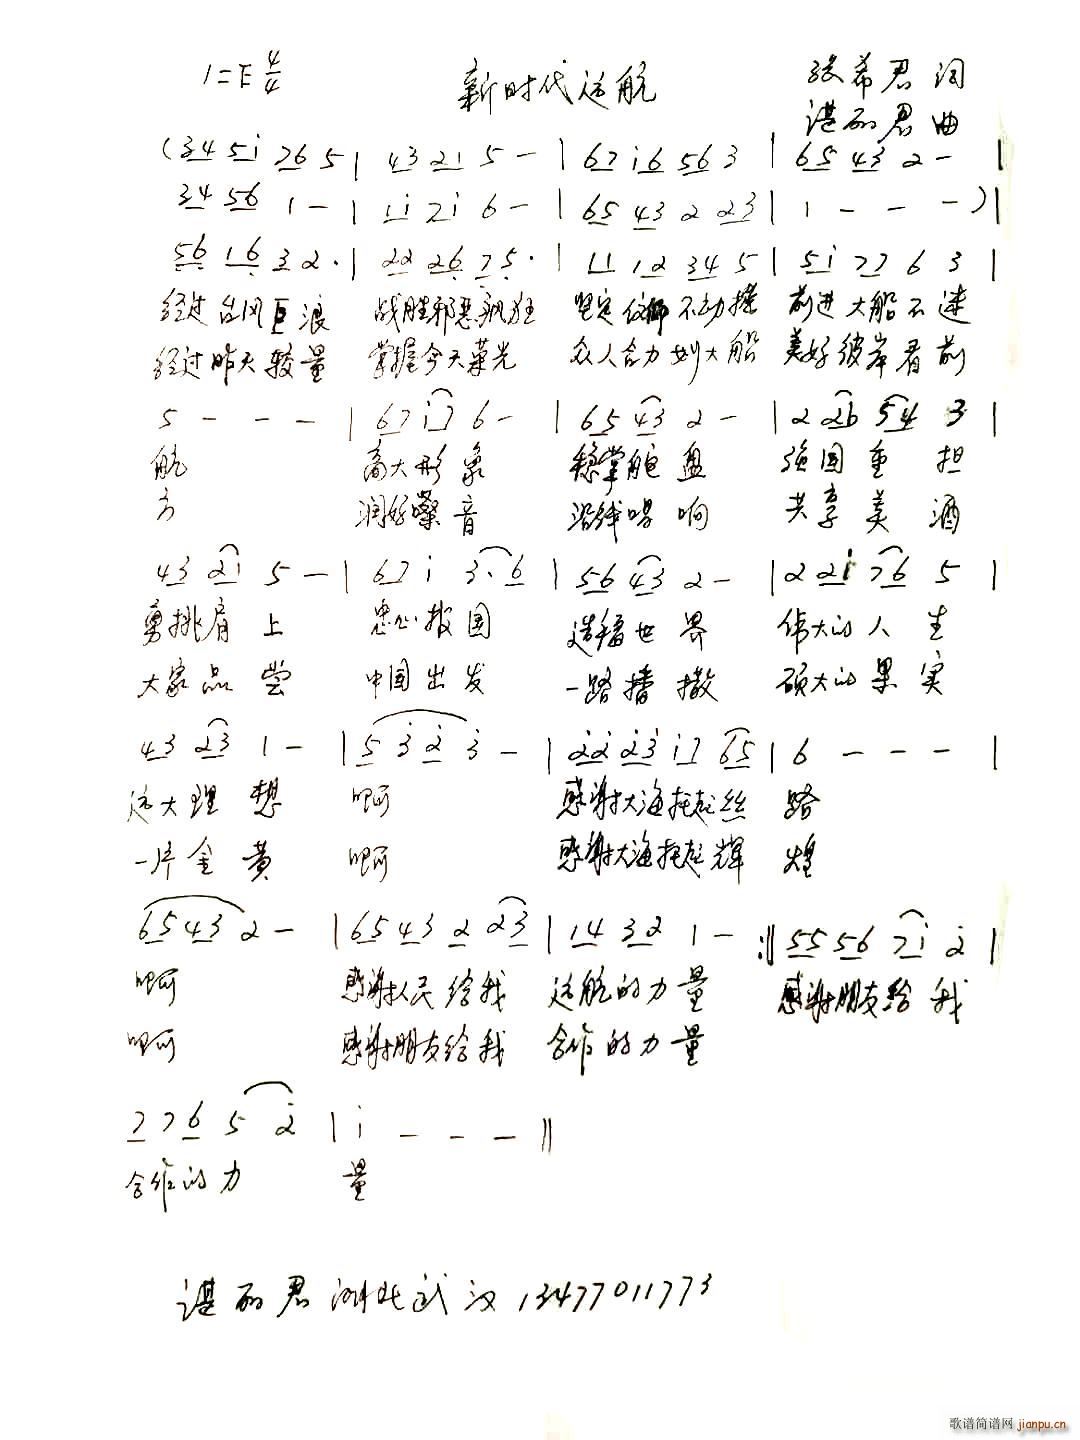 1=E 4/4
新时代远航
张希君 词
谌丽君 曲
(34 5i 76 5 | 43 21 5 - | 67 i6 56 3 | 65 43 2 - |
34 56 1 - | 1i 7i 6 - | 65 43 2 23 | 1 - - - ) |
56 16 32 · | 22 26 75 · | 11 12 34 5 | 5i 77 6 3 |
经过台风巨浪 战胜邪恶疯狂 坚定 不动摇 前进大船不迷
经过昨天较量 掌握今天荣光 众人合力划大船 美好彼岸看前
5 - - - | 67 i7 6 - | 65 43 2 - | 2 26 54 3 |
航 高大形象 稳掌舵盘 强国重担
方 润好嗓音 沿线唱响 共享美酒
43 2i 5 - | 67 i 3· 6 | 56 43 2 - | 2 2i 76 5 |
勇挑肩上 忠心报国 造福世界 伟大的人生
大家品尝 中国出发 一路播撒 硕大的果实
43 23 1 - | 5 3 2 3 - | 22 23 i7 65 | 6 - - - |
远大理想 啊 感谢大海托起丝路
一片金黄 啊 感谢大海托起辉煌
65 43 2 - | 65 43 2 23 | 14 32 1 - :‖ 55 56 7i 2 |
啊 感谢人民给我 远航的力量 感谢朋友给我
啊 感谢朋友给我 合作的力量
7 7 6 5 2 | i - - - ‖
合作的力 量
谌丽君 湖北武汉 13477011773
歌谱简谱网 jianpu.cn